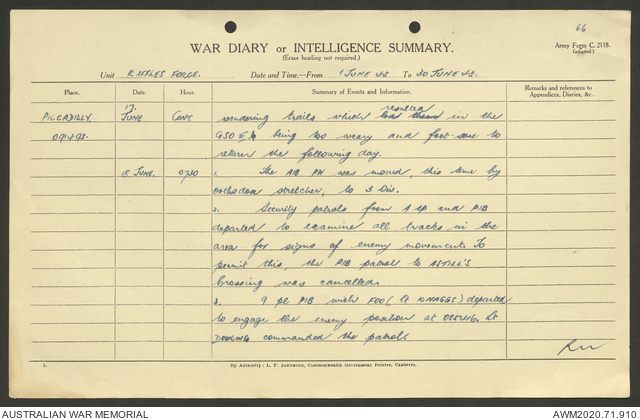 66
WAR DIARY or INTELLIGENCE SUMMARY.
(Erase heading not required.)
Army Form C. 2118.
(adapted.)
Unit RAFFLES FORCE. Date and Time—From 1 JUNE 45 To 30 JUNE 45.
Place. Date. Hour. Summary of Events and Information. Remarks and references to Appendices, Diaries, &c.
resulted
PICCADILLY 17 JUNE Cont. wandering trails which in the
being too weary and foot-sore to
return the following day.
18 JUNE. 0730 1. The AIB PW was moved, this time by
orthodox stretcher, to 3 Div.
2. Security patrols from A and PIB
departed to examine all tracks in the
area for signs of enemy movement. To
permit this, the PIB patrol to ASTILL'S
Crossing was cancelled.
3. 9 pl PIB with FOO (Lt KNAGGS) departed
to engage the enemy position at 055246. Lt
DOWLING commanded the patrol.
By Authority: L. F. Johnston, Commonwealth Government Printer, Canberra.
AUSTRALIAN WAR MEMORIAL AWM2020.71.910